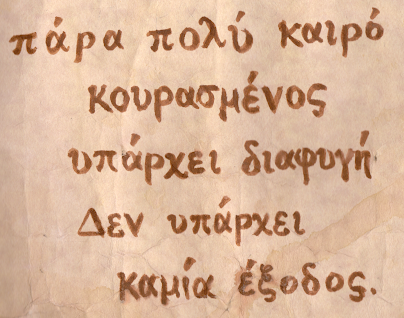 πάρα πολύ καιρό
κουρασμένος
υπάρχει διαφυγή
Δεν υπάρχει
καμία έξοδος.